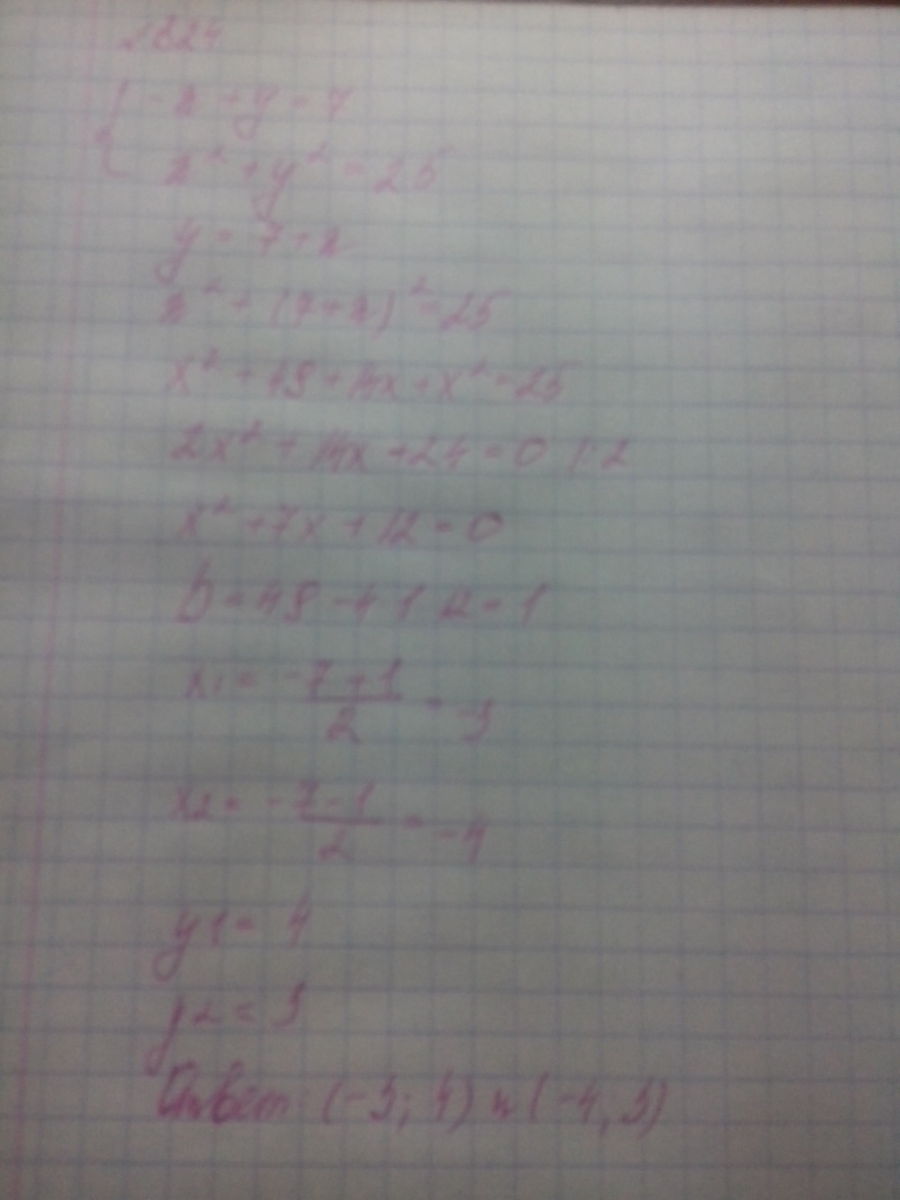 №824
-x + y = 7
x² + y² = 25
y = 7 + x
x² + (7+x)² = 25
x² + 49 + 14x + x² = 25
2x² + 14x + 24 = 0 | : 2
x² + 7x + 12 = 0
D = 49 - 4 · 1 · 12 = 1
x1 = \frac{-7+1}{2} = -3
x2 = \frac{-7-1}{2} = -4
y1 = 4
y2 = 3
Ответ: (-3; 4) и (-4, 3)